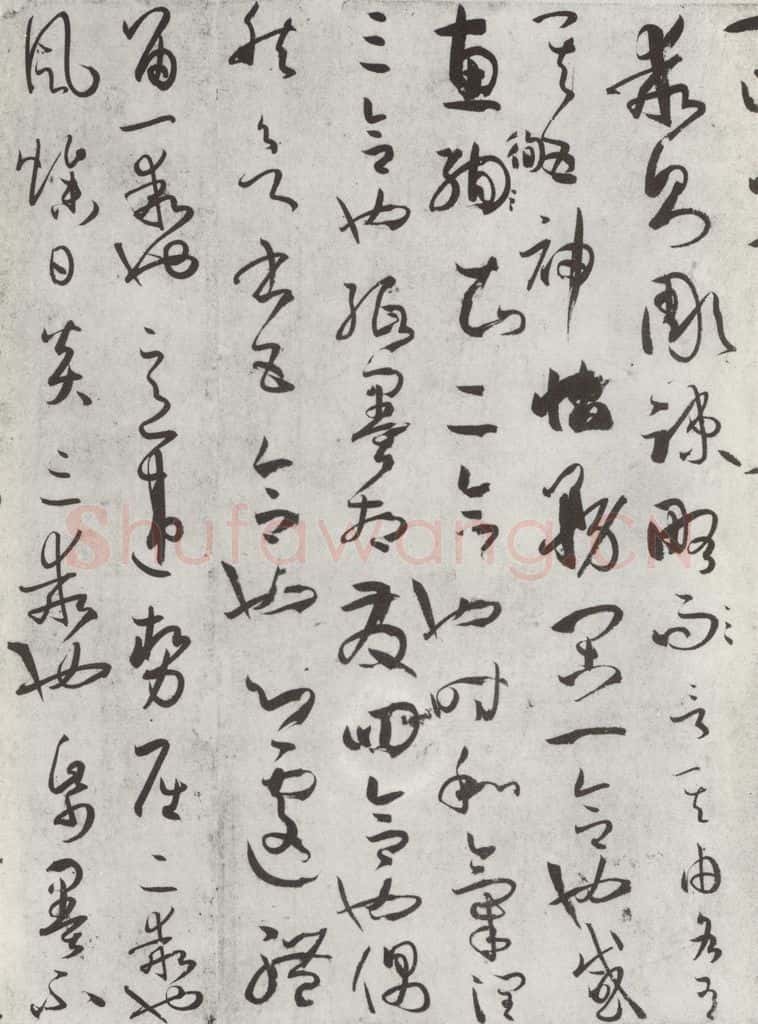 乖則彫疎略而言其由各有
其五神怡務閑一合也感
惠徇知二合也時和氣潤
三合也紙墨相發四合也偶
然欲書五合也心遽體
留一乖也意違勢屈二乖也
風燥日炎三乖也紙墨不
Shufawang.CN